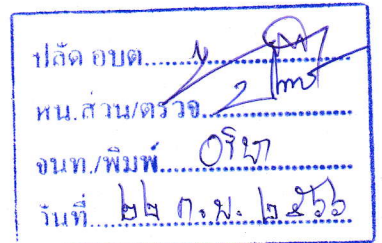 ปลัด อบต.........
หน.ส่วน/ตรวจ.........
จนท./พิมพ์.........
วันที่ ๒๒ ก.พ. ๒๕๖๖